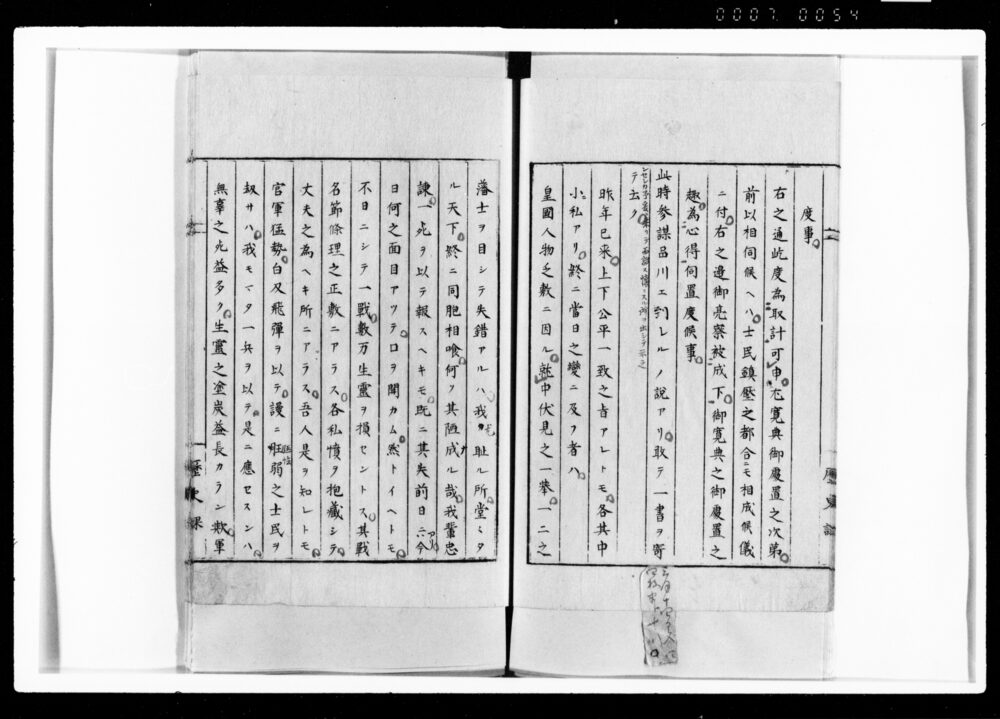 0007 0054
度事
右之通屹度為取計可申尤寛典御處置之次第
前以相伺候ヘハ士民鎮壓之都合ニモ相成候儀
ニ付右之邊御亮察被成下御寛典之御處置之
趣為心得伺置度候事
此時參謀品川エ到レルノ説アリ敢テ一書ヲ寄
テ云ク
昨年已来上下公平一致之旨アレトモ各其中
小私アリ終ニ當日之變ニ及フ者ハ
皇國人物乏敷ニ因ル就中伏見之一擧一二之
歴史課
藩士ヲ目シテ失錯アルハ我カ耻ル所堂々タ
ル天下終ニ同胞相喰何ソ其陋成ル哉我輩忠
諫一死ヲ以テ報スヘキモ既ニ其失前日ニアリ今
日何之面目アツテロヲ開カム然トイヘトモ
不日ニシテ一戰數万生靈ヲ損セントス其戰
名節條理之正敷ニアラス各私憤ヲ抱藏シテ
丈夫之為ヘキ所ニアラス吾人是ヲ知レトモ
官軍猛勢白刃飛彈ヲ以テ謾ニ尫弱之士民ヲ
劫サハ我モマタ一兵ヲ以テ是ニ應セスンハ
無辜之死益多ク生靈之塗炭益長カラン歟軍
歴史課